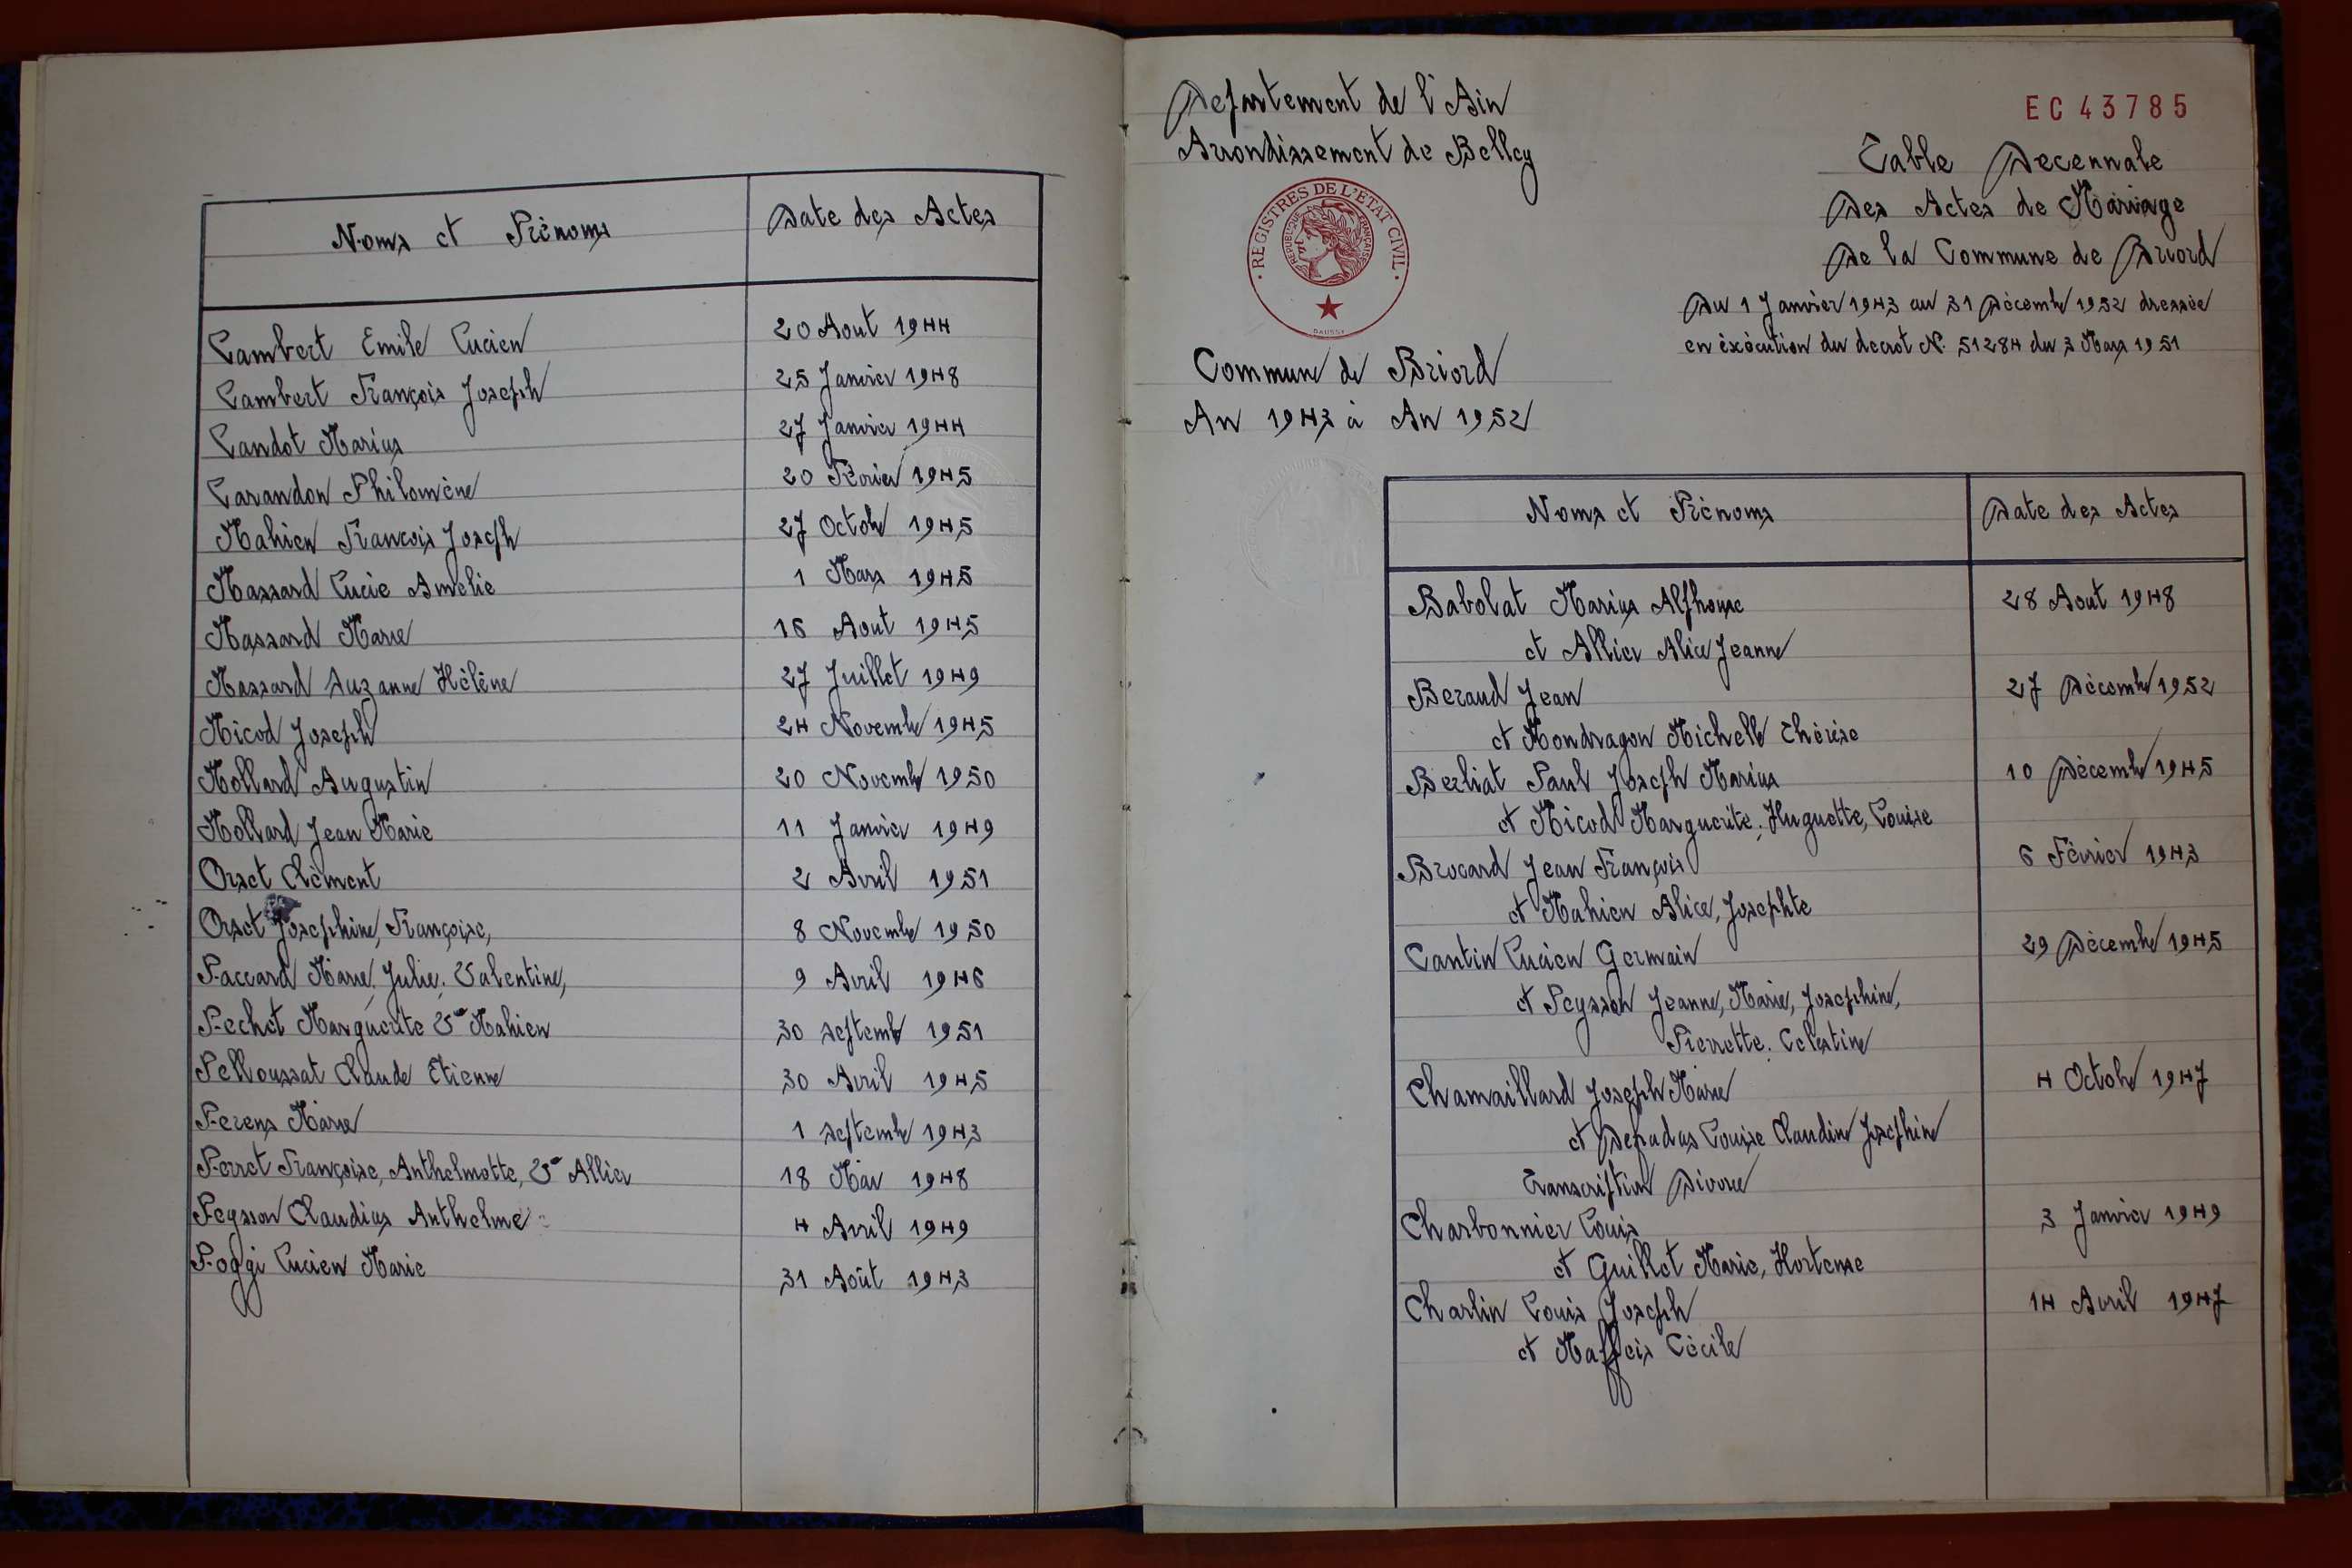 Noms et Prénoms
Date des Actes
Lambert Emile Lucien
20 Aout 1944
Lambert François Joseph
25 Janvier 1948
Landot Marius
27 Janvier 1944
Larandon Philomène
20 Février 1945
Mahieu Francois Joseph
27 Octobre 1945
Massard Lucie Amelie
1 Mars 1945
Massard Marie
16 Aout 1945
Massard Suzanne Hélène
27 Juillet 1949
Micod Joseph
24 Novembre 1945
Mollard Augustin
20 Novembre 1950
Mollard Jean Marie
11 Janvier 1949
Orset Clément
2 Avril 1951
Orset Josephine, Françoise,
8 Novembre 1950
Paccard Marie, Julie, Valentine,
9 Avril 1946
Pechet Marguerite Ve Mahieu
30 septembre 1951
Pelloussat Claude Etienne
30 Avril 1945
Perens Marie
1 septembre 1943
Perret Françoise, Anthelmette, Ve Allier
18 Mai 1948
Peysson Claudius Anthelme
4 Avril 1949
Poggi Lucien Marie
31 Août 1943
Departement de l'Ain
Arrondissement de Belley
REGISTRES DE L'ETAT CIVIL
REPUBLIQUE FRANÇAISE
DAUSSY
Commune de Briord
An 1943 à An 1952
EC 43785
Table Decennale
Des Actes de Mariage
De la Commune de Briord
Du 1 Janvier 1943 au 31 Décembre 1952 dressée
en éxécution du decret N° 51284 du 3 Mars 1951
Noms et Prénoms
Date des Actes
Babolat Marius Alphonse
28 Aout 1948
et Allier Alice Jeanne
Beraud Jean
27 Décembre 1952
et Mondragon Michelle Thérèse
Berliat Paul Joseph Marius
10 Décembre 1945
et Micod Marguerite, Huguette, Louise
Brocard Jean François
6 Février 1943
et Mahieu Alice, Josephte
Cantin Lucien Germain
29 Décembre 1945
et Peysson Jeanne, Marie, Josephine,
Pierrette. Celestine
Chamaillard Joseph Marie
4 Octobre 1947
et Depadus Louise Claudine Josephine
Transcription Divorce
Charbonnier Louis
3 Janvier 1949
et Guillet Marie, Hortense
Charlin Louis Joseph
14 Avril 1947
et Maffeis Cécile